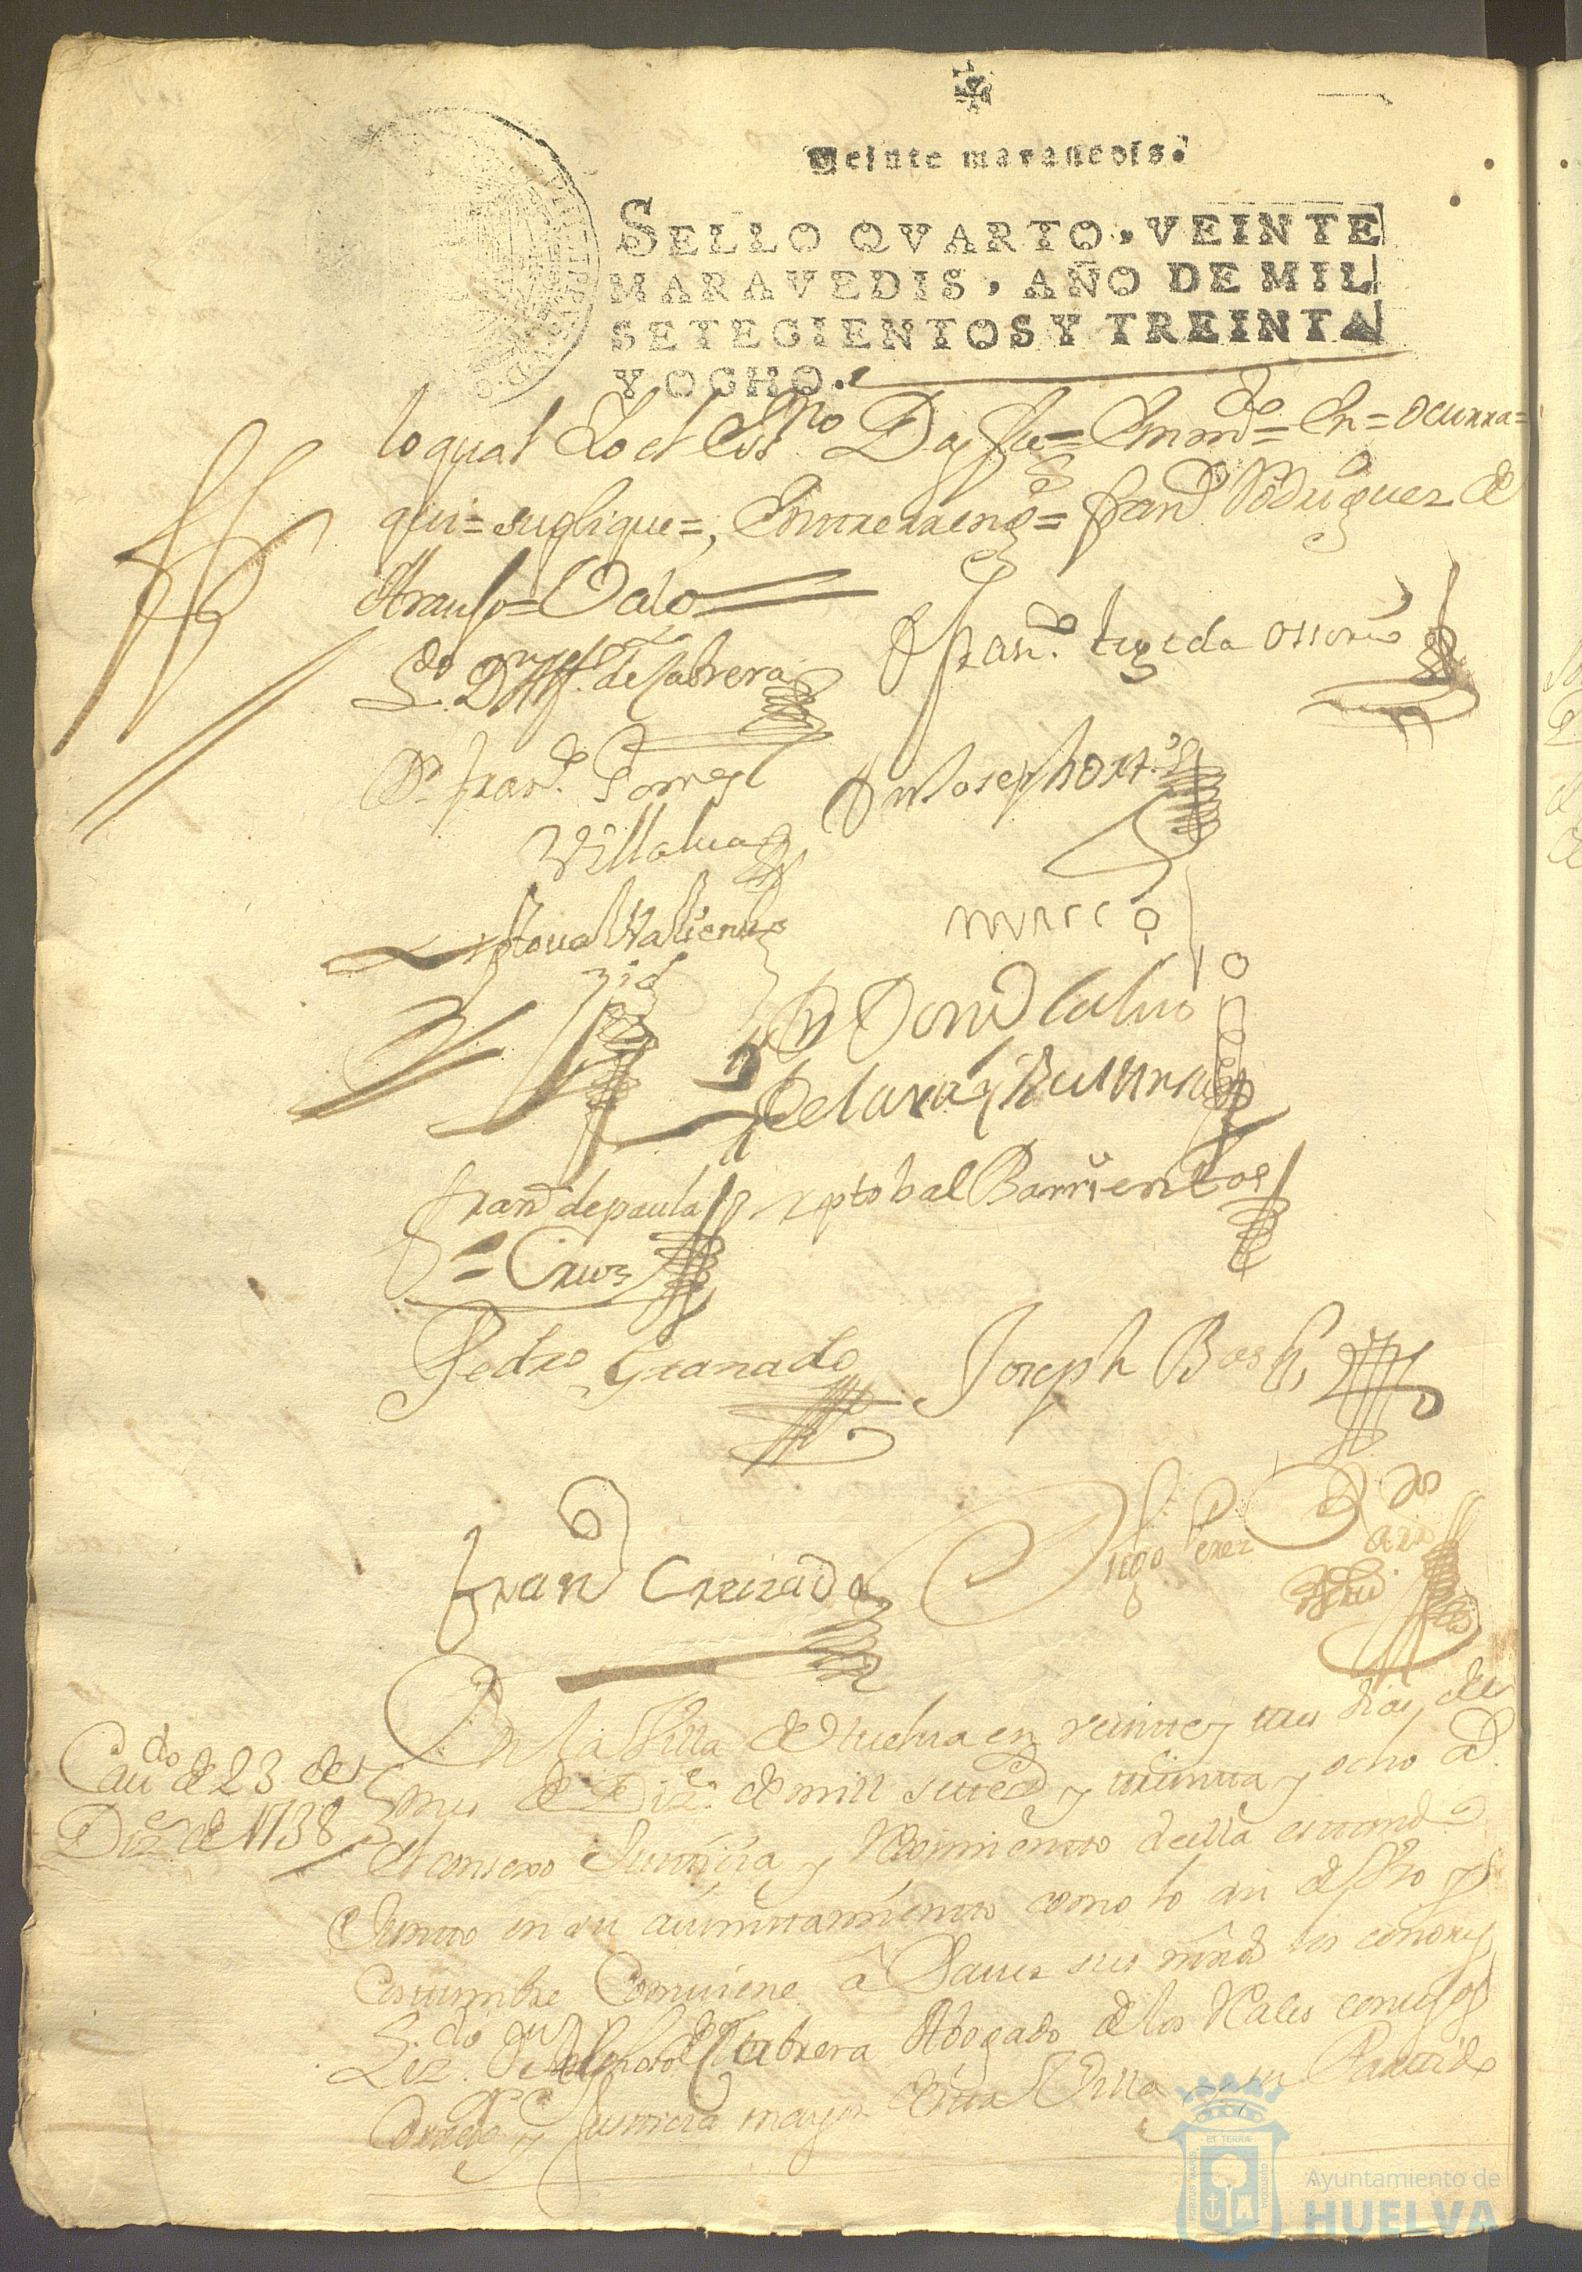 Veinte maravedis.
SELLO QVARTO, VEINTE
MARAVEDIS, AÑO DE MIL
SETECIENTOS Y TREINTA
Y OCHO.
lo qual Yo el Essno Doy fee = Enmdo = En = ocurra =
qui = suplique =, Entrerreng.s = Franco Rodriguez de
Araujo = Valo
L.do Dn Alfso de Cabrera
Fran.co tejeda ossorio
Dn Fran.co Torres
Villalua
Dn Joseph Ort.s
Xptoual Valiente
Dn Domo Caluo
de lara y
Franco de paula
Cruz
Xptobal Barrientos
Pedro Granado
Joseph Bos
Franco Creizado
Diego Perez
Cau.do de 23 de
Dize de 1738
En la Villa de Huelua en veinte y tres dias de el
mes de Dize de mill setecos y treinta y ocho as
el consexo Justicia y Reximiento de ella estando
Junto en su aiuntamiento como lo an de Vso y
Costumbre Conuiene â Sauer sus mrds los señores
Liz.do Dn Alphonso de Cabrera Abogado de los Rales consejos
Corregor y Justicia mayor de esta Villa y su Partido
Ayuntamiento de
HUELVA